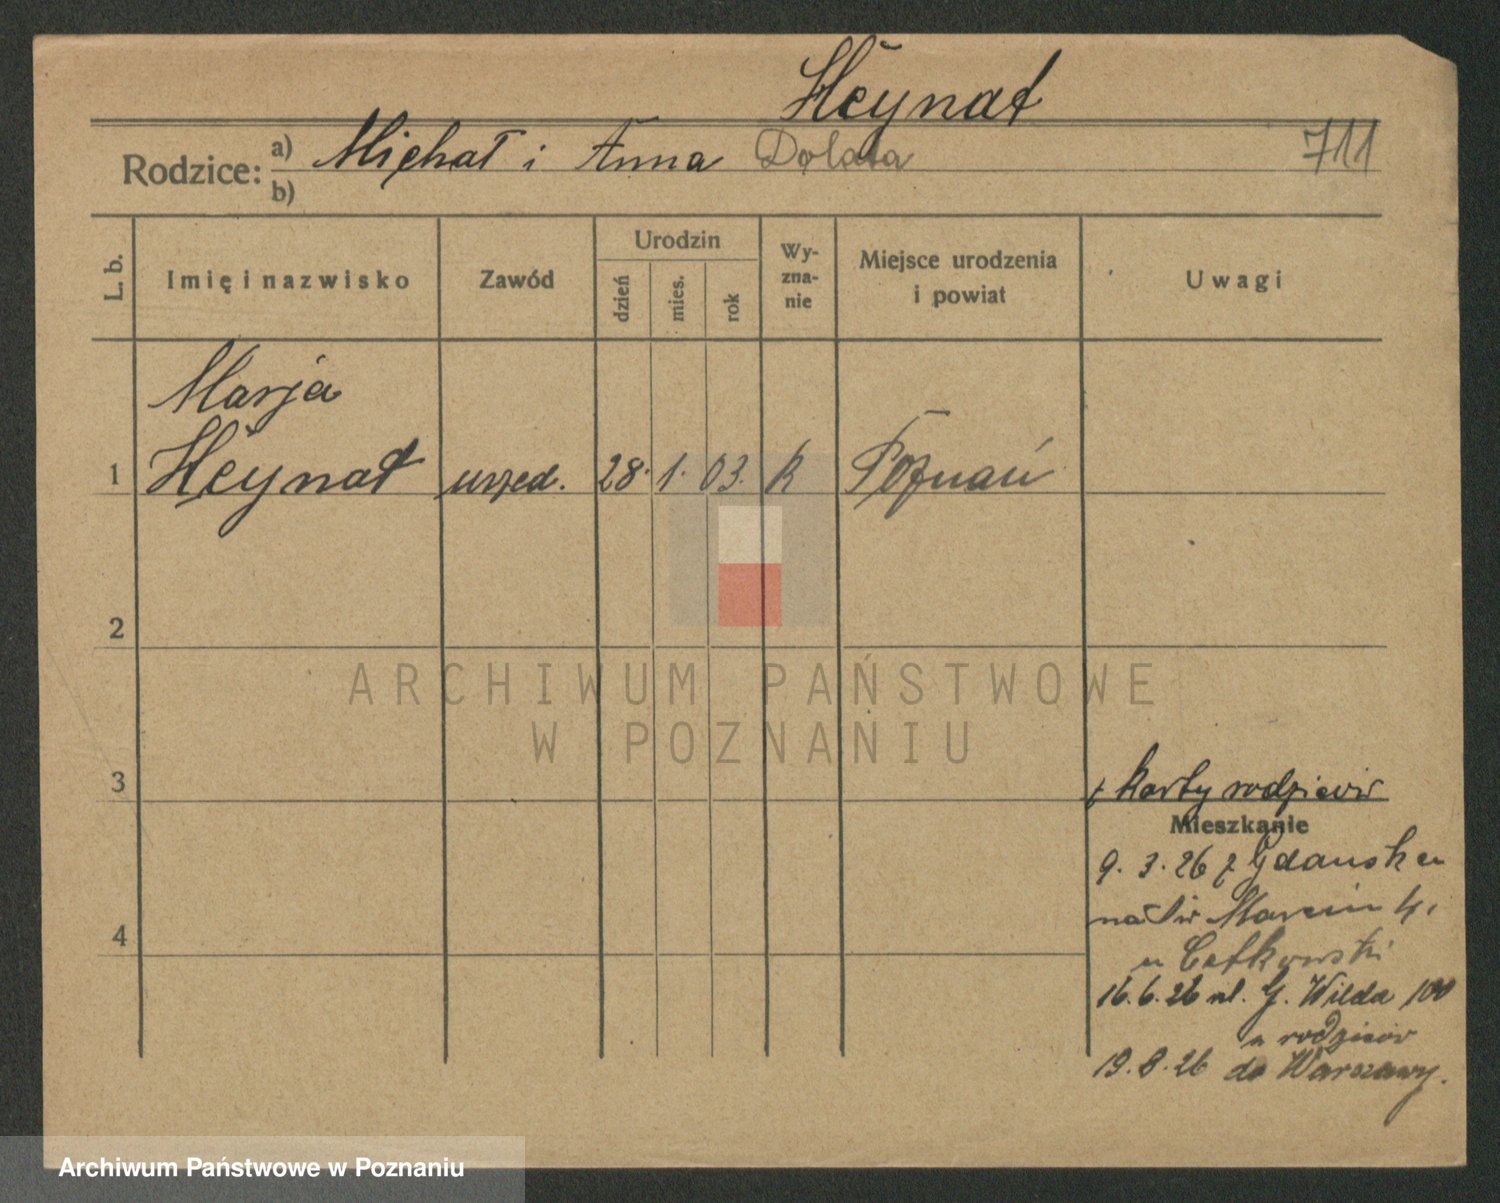 Heynat
Rodzice: a) Michał i Anna Dolata 711
b)
L. b. Imię i nazwisko Zawód Urodzin dzień mies. rok Wy-zna-nie Miejsce urodzenia i powiat Uwagi
Marja
1 Heynat urzęd. 28. 1. 03. k Poznań
2
ARCHIWUM PAŃSTWOWE
W POZNANIU
3 z karty rodziców
Mieszkanie
9. 3. 26 z Gdańska
na św Marcin 4.
u
4
16.6.26 ul. G. Wilda 100
u rodziców
19.8.26 do Warszawy.
Archiwum Państwowe w Poznaniu